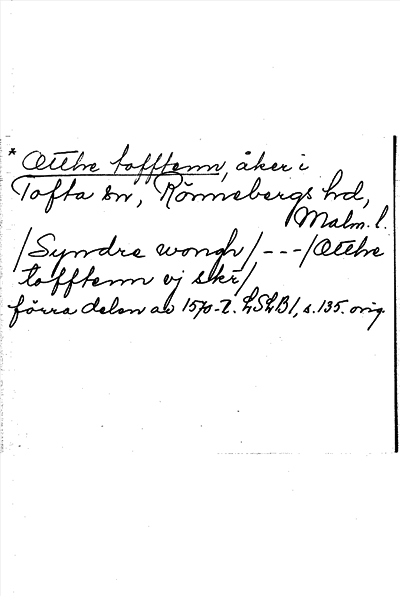 * Atthe tofftenn, åker i
Tofta sn, Rönnebergs hd,
Malm. l.
/Syndre wongh/ --- /Atthe
tofftenn vj skr/
förra delen av 1570-t. LSLB1, s. 135. orig.